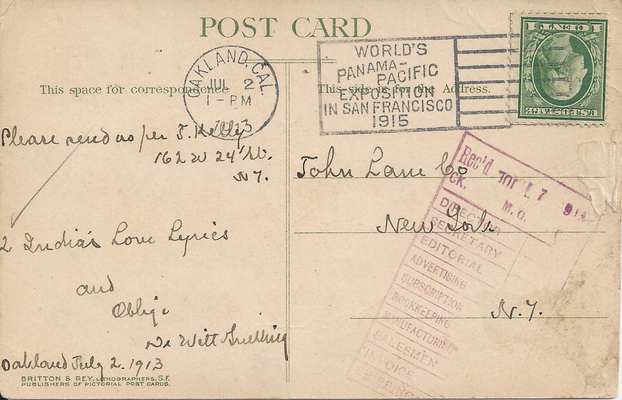 POST CARD
This space for correspondence
This side is for the Address.
OAKLAND, CAL.
JUL 2
1-PM
WORLD'S
PANAMA-
PACIFIC
EXPOSITION
IN SAN FRANCISCO
1915
U.S. POSTAGE
Please send as per F. Kelly
162 W 24 St.
N.Y.
2 India's Love Lyrics
and
Oblige
De Witt
Oakland July 2. 1913
John Lane Co
New York
N.Y.
Rec'd JUL 7
CK. M.O.
DIRECTOR
SECRETARY
EDITORIAL
ADVERTISING
SUBSCRIPTION
BOOKKEEPING
MANUFACTURING
SALESMEN
INVOICE
SHIPPING
BRITTON & REY, LITHOGRAPHERS, S.F.
PUBLISHERS OF PICTORIAL POST CARDS.